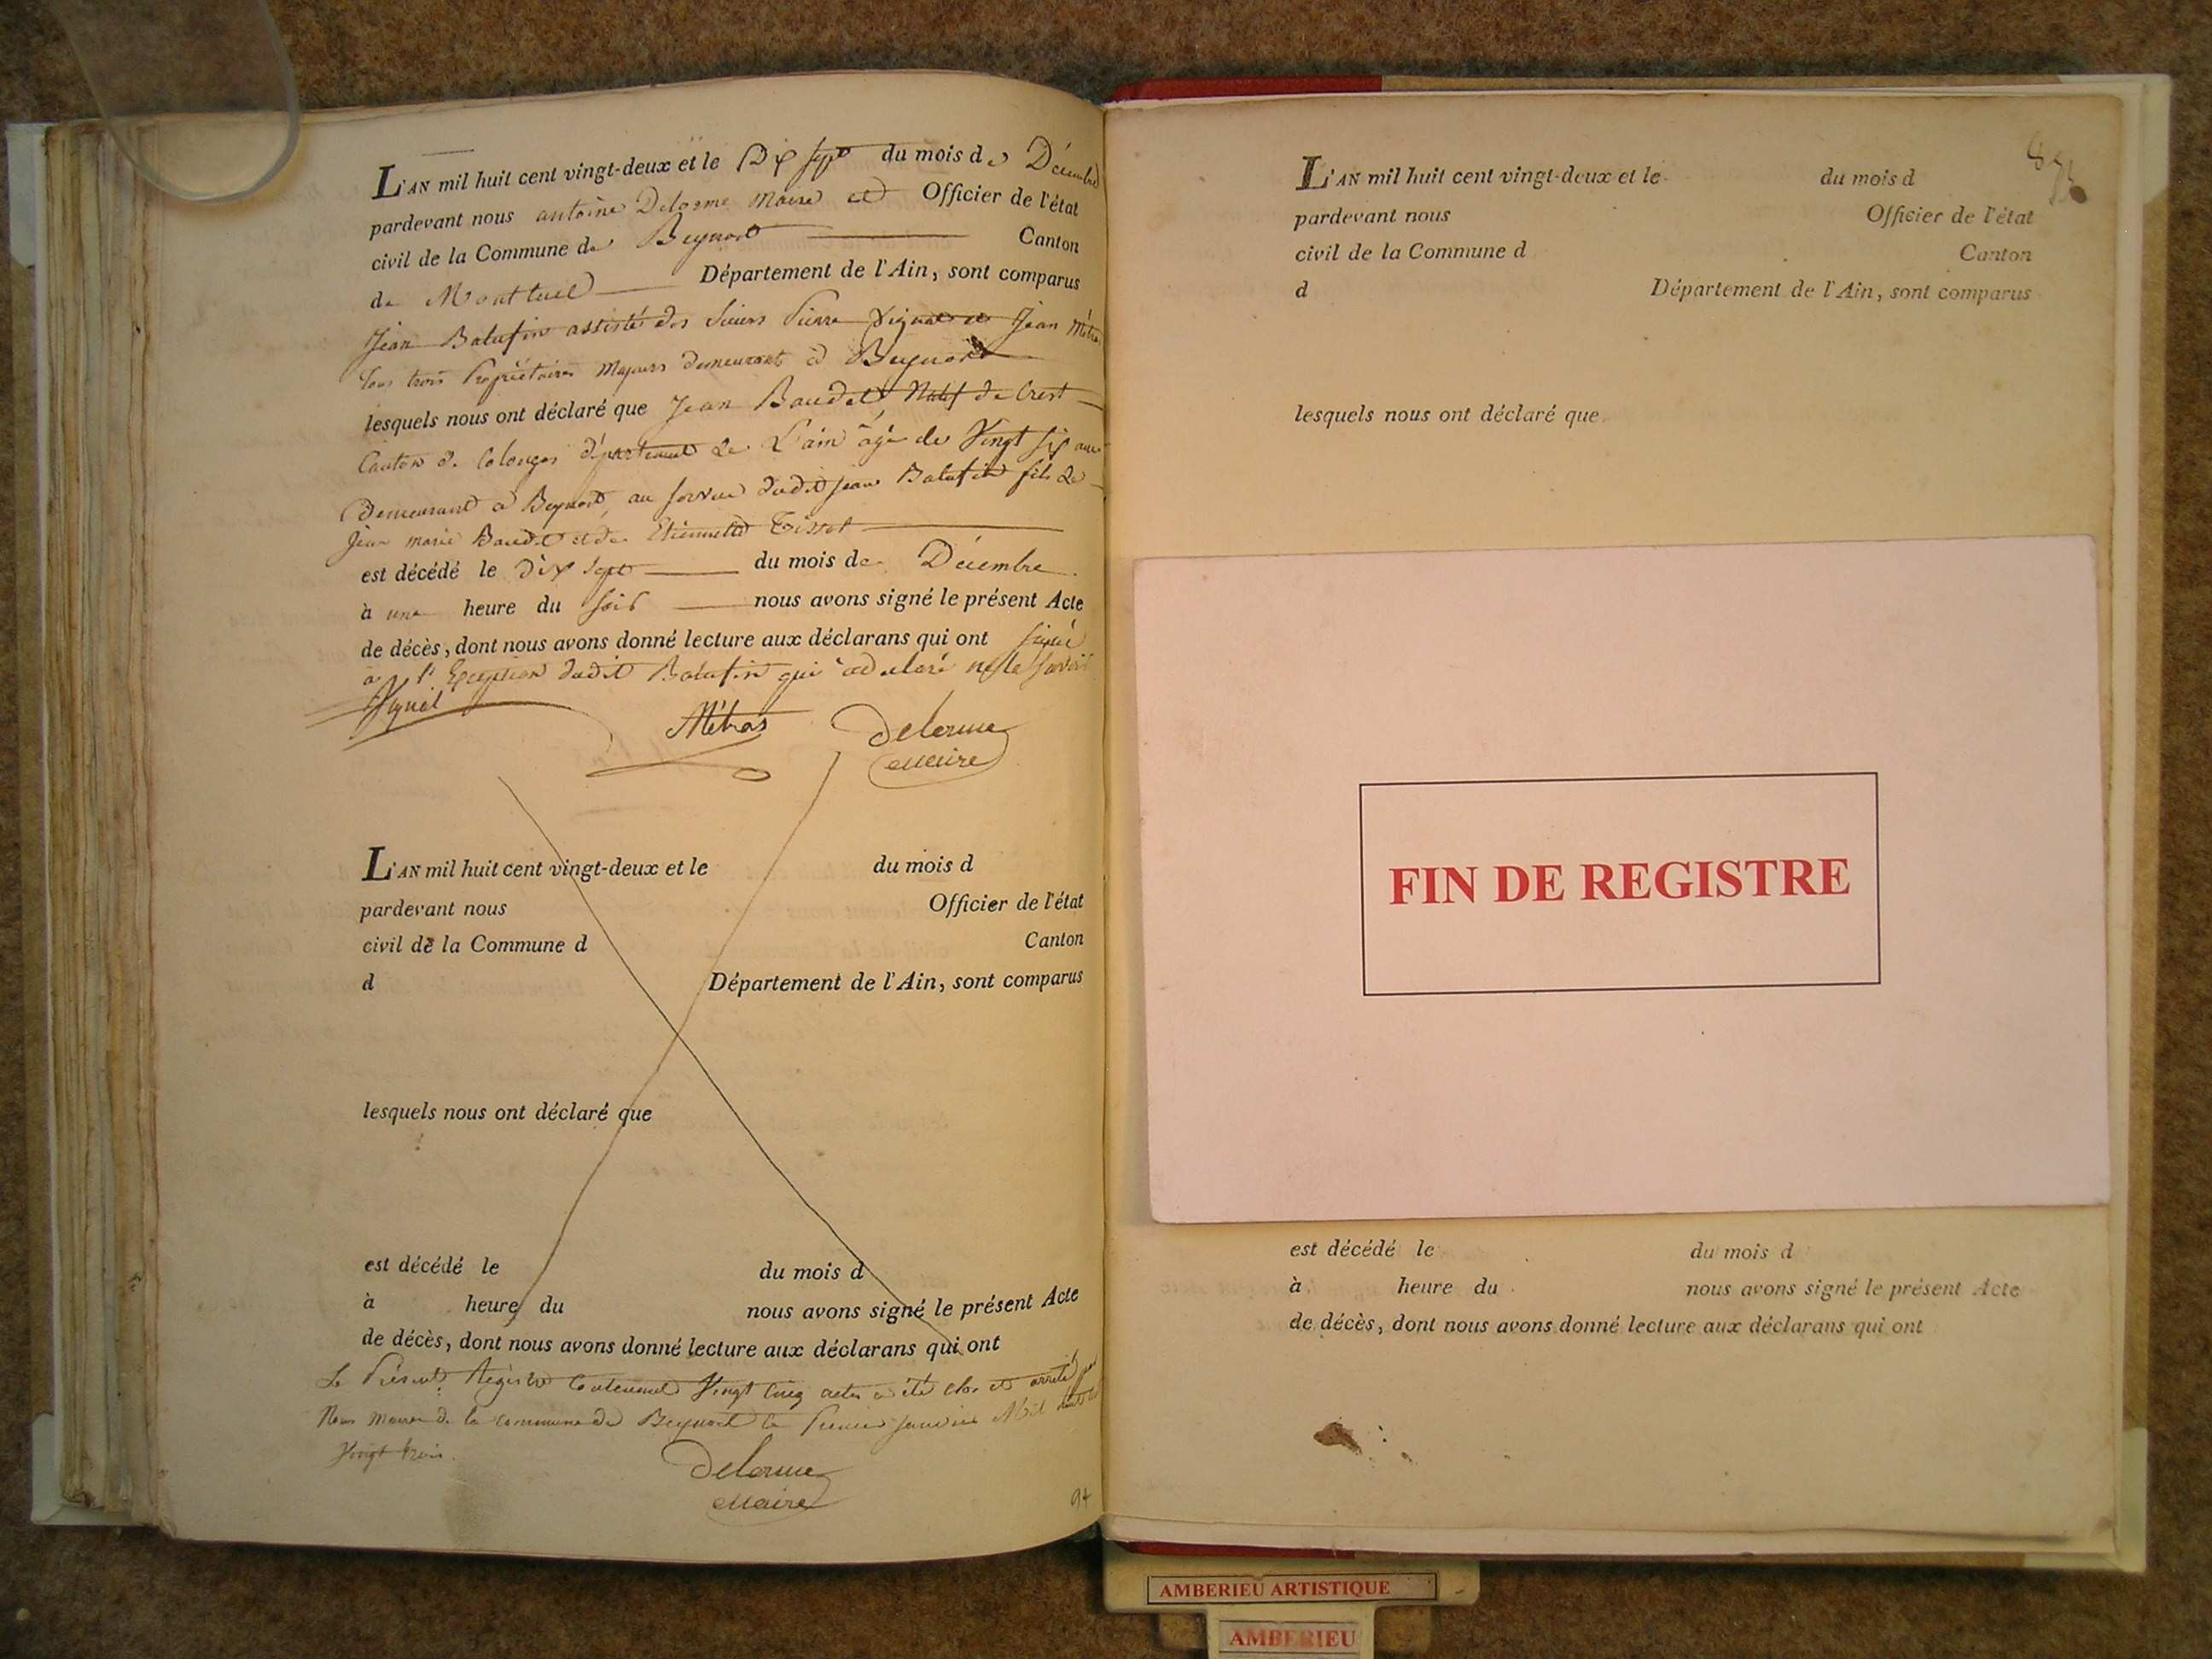 L'AN mil huit cent vingt-deux et le Dix sept du mois de Décembre
pardevant nous antoine Delorme Maire et Officier de l'état
civil de la Commune de Beynost Canton
de Montluel Département de l'Ain, sont comparus
Jean Balufin assisté des Sieurs Pierre Vignat et Jean Métras
Tous trois Propriétaires Majeurs demeurants à Beynost
lesquels nous ont déclaré que Jean Baudet Natif de Crest
Canton de Colonges département de L'ain âgé de Vingt six ans
Demeurant à Beynost, au service dudit jean Balufin fils de
Jean marie Baudet et de Etiennette Tissot
est décédé le dix Sept du mois de Décembre
à une heure du soir nous avons signé le présent Acte
de décès, dont nous avons donné lecture aux déclarans qui ont signé
a l'Exception dudit Balufin qui a declaré ne le savoir
Métras Delorme
Maire
L'AN mil huit cent vingt-deux et le du mois d
pardevant nous Officier de l'état
civil de la Commune d Canton
d Département de l'Ain, sont comparus
lesquels nous ont déclaré que
est décédé le du mois d
à heure du nous avons signé le présent Acte
de décès, dont nous avons donné lecture aux déclarans qui ont
Le Présent Registre Contenant Vingt Cinq actes a été clos et arrêté par
Nous Maire de la commune de Beynost le Premier janvier Mil huit cent
Vingt trois.
Delorme
Maire
94
L'AN mil huit cent vingt-deux et le du mois d
pardevant nous Officier de l'état
civil de la Commune d Canton
d Département de l'Ain, sont comparus
lesquels nous ont déclaré que
FIN DE REGISTRE
est décédé le du mois d
à heure du nous avons signé le présent Acte
de décès, dont nous avons donné lecture aux déclarans qui ont
AMBERIEU ARTISTIQUE
AMBERIEU